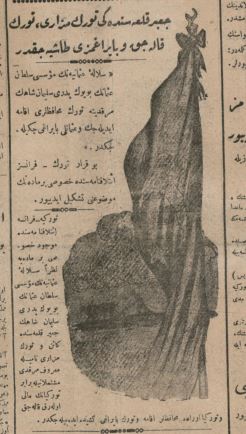 جعبر قلعه‌سنده‌كی تورك مزاری، تورك
قاله‌جق و بایراغمزی طاشیه‌جقدر
« سلالهٔ عثمانیه‌نك مؤسسی سلطان
عثمانك بویوك پدری سلیمان شاهك
مرقدینه تورك محافظلری اقامه
ایدیله‌جك وعثمانلی بایراغی چكیله‌
جكدر. »
بو قرار تورك - فرانسز
ائتلافنامه‌سنده خصوصی بر ماده‌نك
موضوعنی تشكیل ایدییور.
توركیه - فرانسه
ائتلافنامه‌سنده
موجود خصو-
صی بر ماده‌یه
نظراً سلالهٔ
عثمانیه‌نك مؤسسی
سلطان عثمانك
بویوك پدری
سلیمان شاهك
جعبر قلعه‌سنده
كائن و تورك
مزاری نامیله
معروف مرقدی
مشتملاتیله برابر
توركیانك مالی
اوله‌رق قاله‌جق
وتوركیا اوراده محافظلر اقامه وتورك بایراغی كشیده ایده‌بیله‌جكدر.